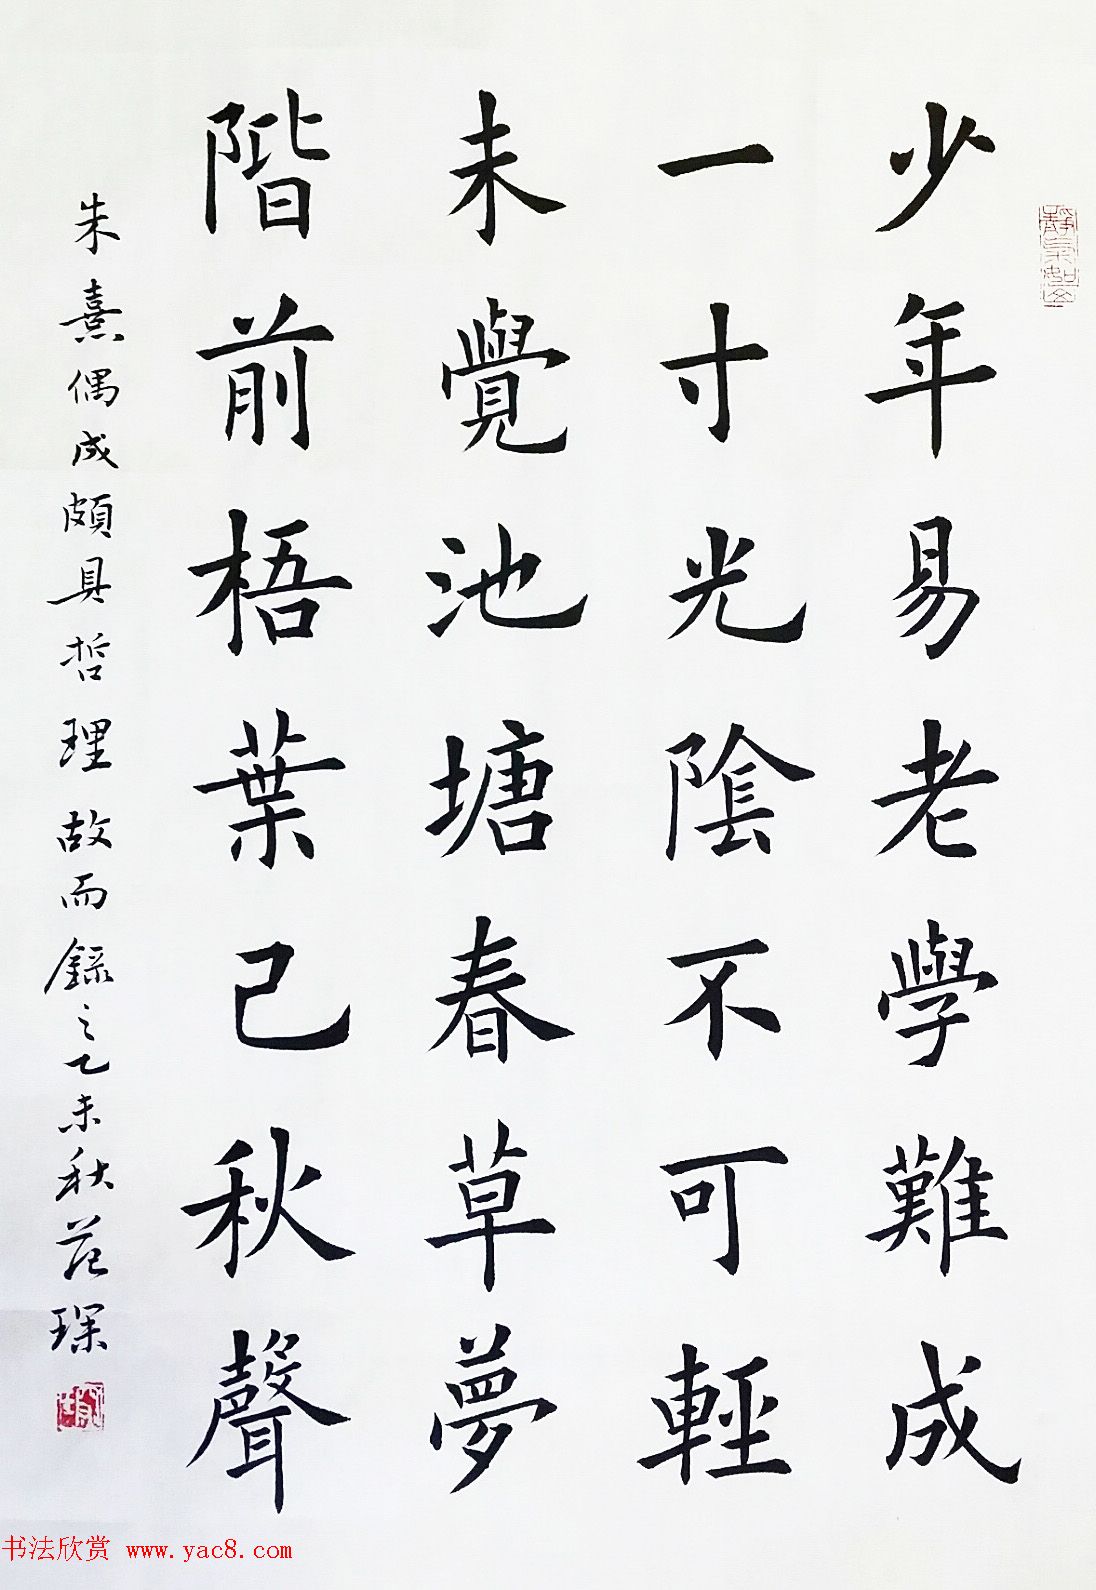 少年易老學難成
一寸光陰不可輕
未覺池塘春草夢
階前梧葉己秋聲
朱熹偶成頗具哲理故而錄之乙未秋范琛
书法欣赏 www.yac8.com